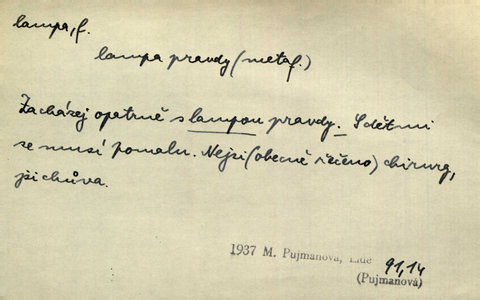 lampa, f.
lampa pravdy (metaf.)
Zacházej opatrně s lampou pravdy. S dětmi
se musí pomalu. Nejsi (obecně řečeno) chirurg,
jsi chůva.
1937 M. Pujmanová, Lidé
91,14
(Pujmanová)